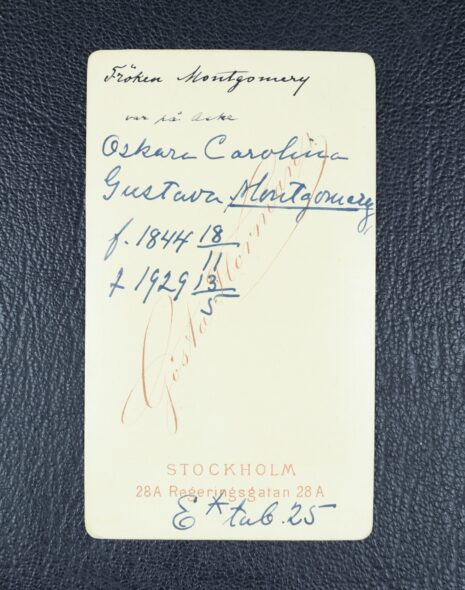 Fröken Montgomery
var på Aske
Oskara Carolina
Gustava Montgomery
f. 1844 18/11
† 1929 13/5
Gösta Florman
STOCKHOLM
28A Regeringsgatan 28A
E* tab. 25